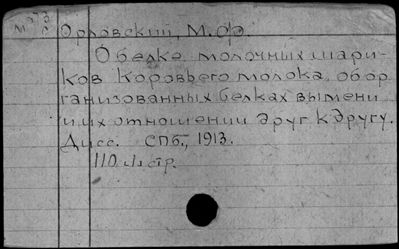 Орловский, М.Ф.
О белке молочных шари-
ков коровьего молока, обор
ганизованных белках вымени
и их отношении друг к другу.
Дисс. СПб., 1913.
110 стр.